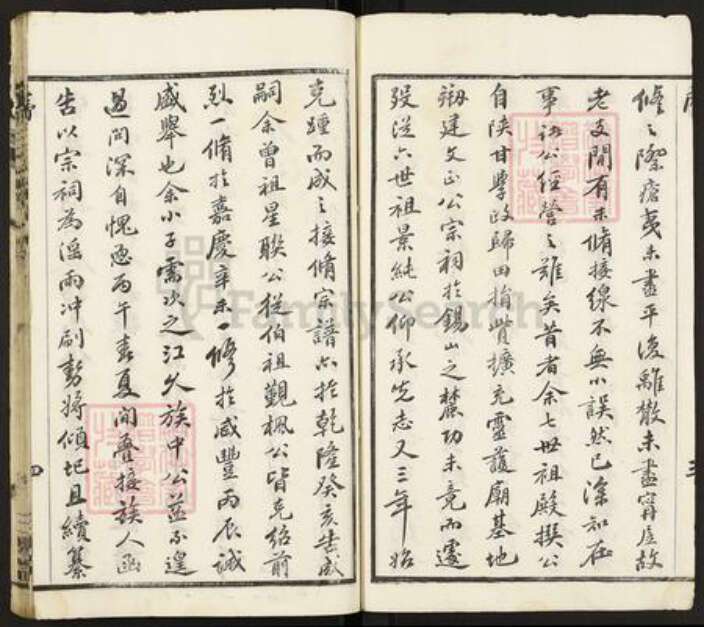 修之際瘡夷未盡平復離散未盡甯居故
老支閒有未脩接線不無小誤然已深知在
事諸公經營之難矣昔者余七世祖殿撰公
自陝甘學政歸田捐貲擴充靈護廟基地
剏建文正公宗祠於錫山之麓功未竟而遽
歿從六世祖景純公仰承先志又三年始
克踵而成之接脩宗譜亦於乾隆癸亥告成
嗣余曾祖星聯公從伯祖觀楓公皆克紹前
烈一脩於嘉慶辛未一修於咸豐丙辰誠
盛舉也余小子需次之江久族中公益不遑
過問深自愧恧丙午春夏閒疊接族人函
告以宗祠為淫雨沖刷勢將傾圮且續纂
FamilySearch